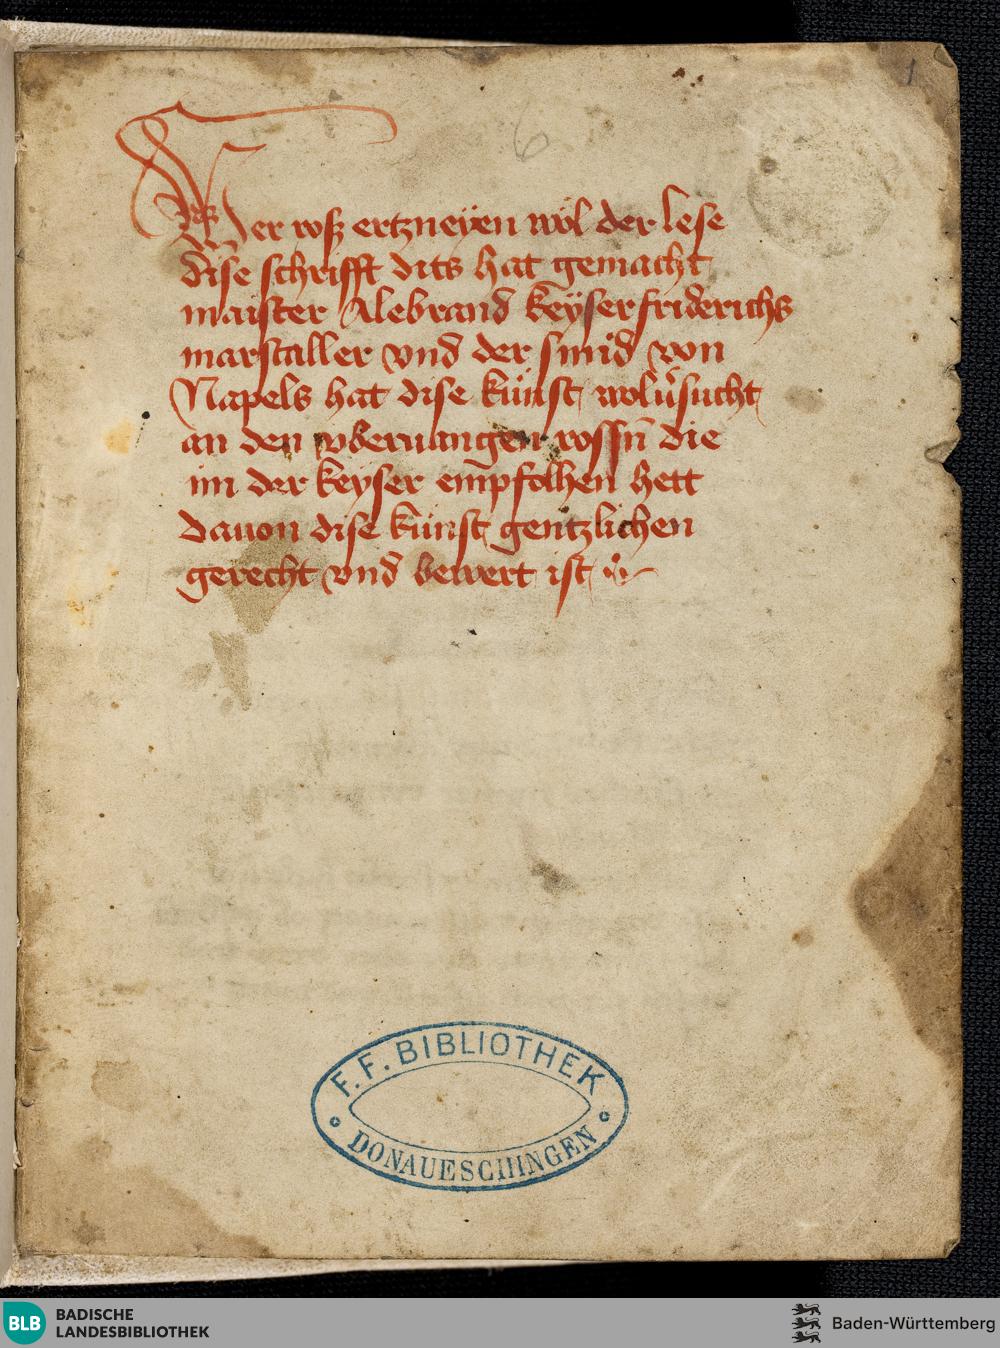 1
6
Wer rosz ertzneÿen wöl der lese
dise schrifft dits hat gemacht
maister Alebrand keÿser friderichs
marstaller vnd der smid von
Napels hat dise kunst wol v̉sucht
an den rossn̄ die
im der keyser empfolhen hett
dauon dise kunst gentzlichen
gerecht vnd bewert ist
F. F. BIBLIOTHEK
DONAUESCHINGEN
BLB BADISCHE
LANDESBIBLIOTHEK
Baden-Württemberg